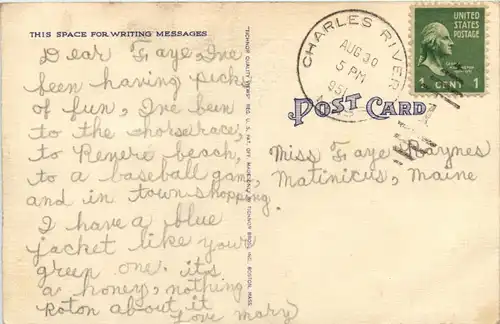 THIS SPACE FOR WRITING MESSAGES
Dear Faye, I've
been having pucks
of fun, I've been
to the horserace,
to Revere beach,
to a baseball game,
and in town shopping.
I have a blue
jacket like your
green one. it's
a honey, nothing
roton about it
Love Mary
"TICHNOR QUALITY VIEWS" REG. U. S. PAT. OFF. MADE ONLY BY TICHNOR BROS. INC., BOSTON, MASS.
CHARLES RIVER
AUG 30
5 PM
1951
MASS.
UNITED
STATES
POSTAGE
1 CENT 1
POST CARD
Miss Faye Raynes
Matinicus, Maine